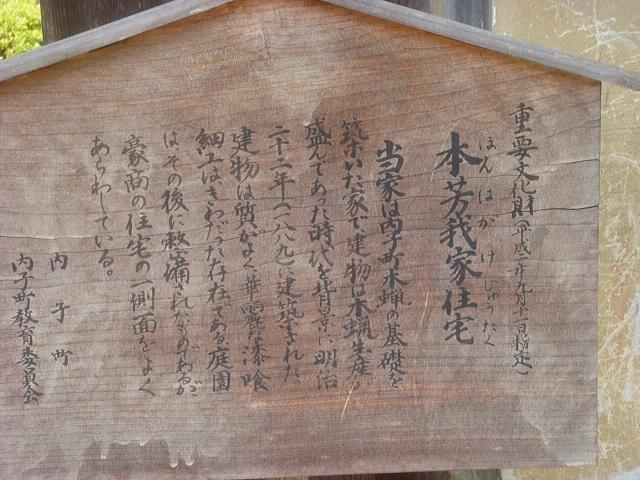 重要文化財（平成二年九月十一日指定）
ほんはがけじゅうたく
本芳我家住宅
当家は内子町木蝋の基礎を
築いた家で建物は木蝋生産が
盛んであった時代を背景に明治
二十二年（一八八九）に建築された。
建物は質がよく華麗な漆喰
細工はきわだった存在である庭園
はその後に整備されたものであるが
豪商の住宅の一側面をよく
あらわしている。
内子町
内子町教育委員会